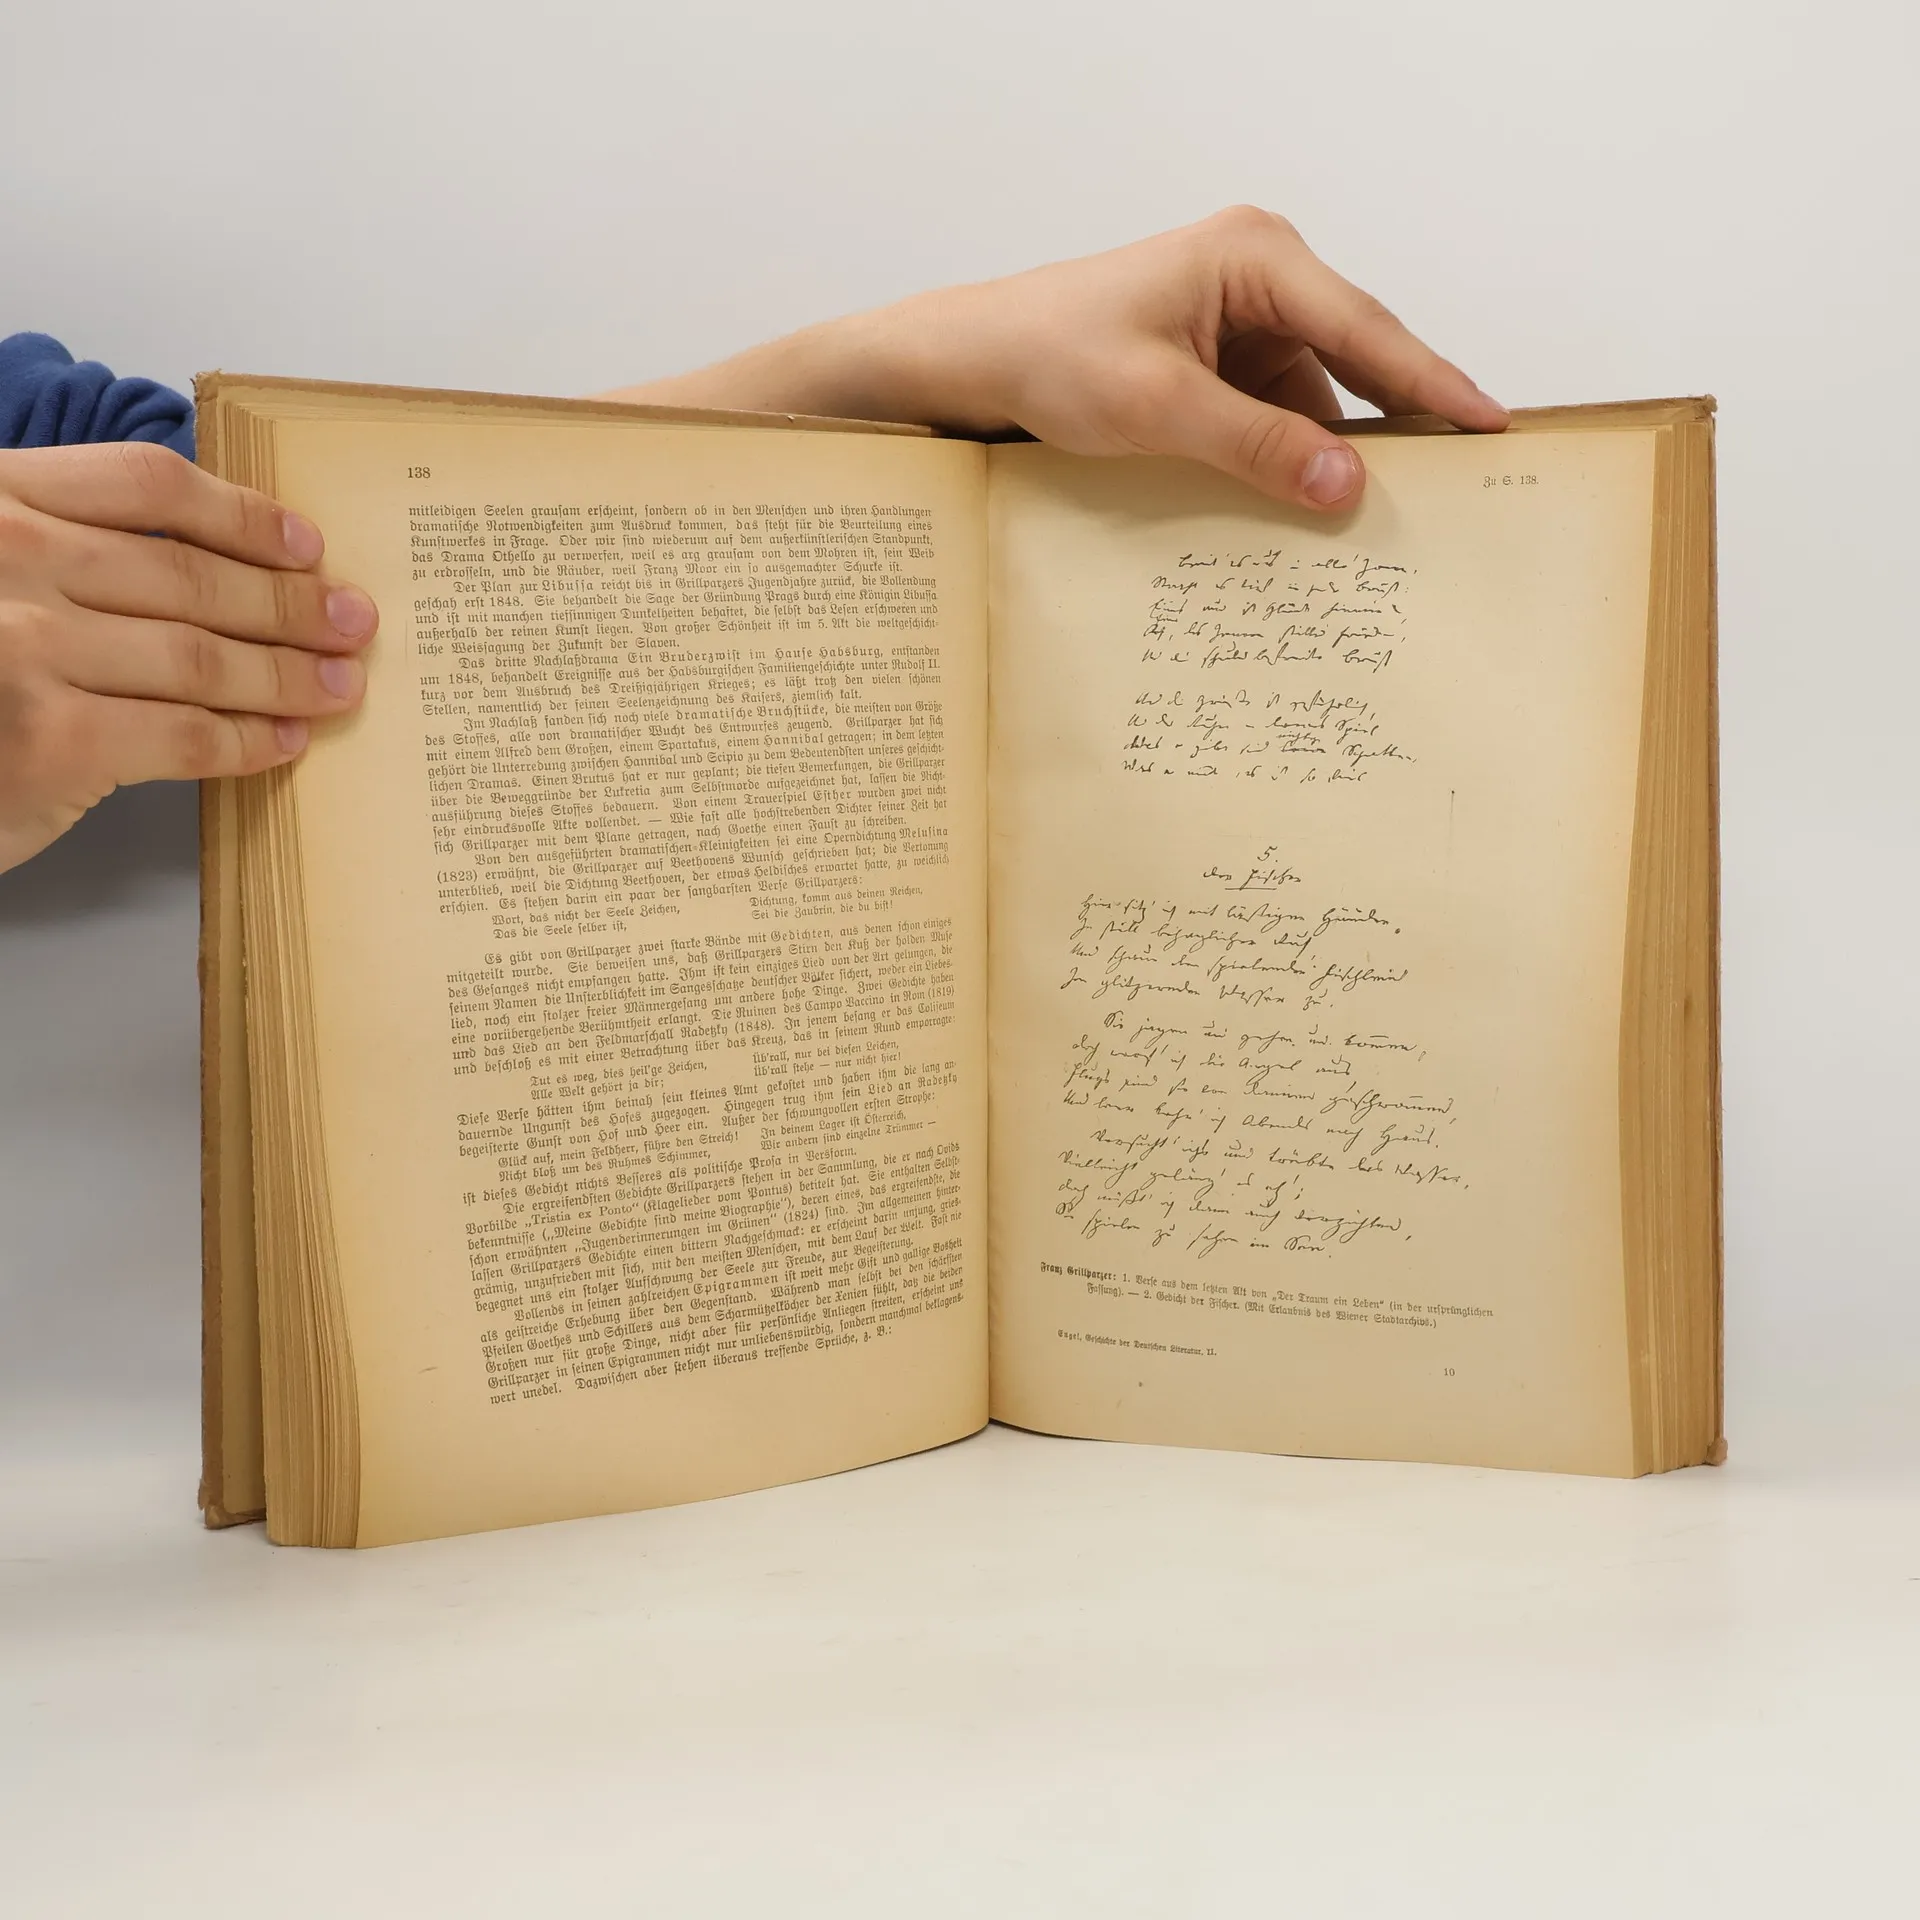 138
mitleidigen Seelen grausam erscheint, sondern ob in den Menschen und ihren Handlungen
dramatische Notwendigkeiten zum Ausdruck kommen, das steht für die Beurteilung eines
Kunstwerkes in Frage. Oder wir sind wiederum auf dem außerkünstlerischen Standpunkt,
das Drama Othello zu verwerfen, weil es arg grausam von dem Mohren ist, sein Weib
zu erdrosseln, und die Räuber, weil Franz Moor ein so ausgemachter Schurke ist.
Der Plan zur Libussa reicht bis in Grillparzers Jugendjahre zurück, die Vollendung
geschah erst 1848. Sie behandelt die Sage der Gründung Prags durch eine Königin Libussa
und ist mit manchen tiefsinnigen Dunkelheiten behaftet, die selbst das Lesen erschweren und
außerhalb der reinen Kunst liegen. Von großer Schönheit ist im 5. Akt die weltgeschicht-
liche Weissagung der Zukunft der Slaven.
Das dritte Nachlaßdrama Ein Bruderzwist im Hause Habsburg, entstanden
um 1848, behandelt Ereignisse aus der Habsburgischen Familiengeschichte unter Rudolf II.
kurz vor dem Ausbruch des Dreißigjährigen Krieges; es läßt trotz den vielen schönen
Stellen, namentlich der feinen Seelenzeichnung des Kaisers, ziemlich kalt.
Im Nachlaß fanden sich noch viele dramatische Bruchstücke, die meisten von Größe
des Stoffes, alle von dramatischer Wucht des Entwurfes zeugend. Grillparzer hat sich
mit einem Alfred dem Großen, einem Spartakus, einem Hannibal getragen; in dem letzten
gehört die Unterredung zwischen Hannibal und Scipio zu dem Bedeutendsten unseres geschicht-
lichen Dramas. Einen Brutus hat er nur geplant; die tiefen Bemerkungen, die Grillparzer
über die Beweggründe der Lukretia zum Selbstmorde aufgezeichnet hat, lassen die Nicht-
ausführung dieses Stoffes bedauern. Von einem Trauerspiel Esther wurden zwei nicht
sehr eindrucksvolle Akte vollendet. — Wie fast alle hochstrebenden Dichter seiner Zeit hat
sich Grillparzer mit dem Plane getragen, nach Goethe einen Faust zu schreiben.
Von den ausgeführten dramatischen Kleinigkeiten sei eine Operndichtung Melusina
(1823) erwähnt, die Grillparzer auf Beethovens Wunsch geschrieben hat; die Vertonung
unterblieb, weil die Dichtung Beethoven, der etwas Heldisches erwartet hatte, zu weichlich
erschien. Es stehen darin ein paar der sangbarsten Verse Grillparzers:
Wort, das nicht der Seele Zeichen,
Das die Seele selber ist,
Dichtung, komm aus deinen Reichen,
Sei die Zaubrin, die du bist!
Es gibt von Grillparzer zwei starke Bände mit Gedichten, aus denen schon einiges
mitgeteilt wurde. Sie beweisen uns, daß Grillparzers Stirn den Kuß der holden Muse
des Gesanges nicht empfangen hatte. Ihm ist kein einziges Lied von der Art gelungen, die
seinem Namen die Unsterblichkeit im Sangesschatze deutscher Völker sichert, weder ein Liebes-
lied, noch ein stolzer freier Männergesang um andere hohe Dinge. Zwei Gedichte haben
eine vorübergehende Berühmtheit erlangt. Die Ruinen des Campo Vaccino in Rom (1819)
und das Lied an den Feldmarschall Radetzky (1848). In jenem besang er das Coliseum
und beschloß es mit einer Betrachtung über das Kreuz, das in seinem Rund emporragte:
Tut es weg, dies heil'ge Zeichen,
Alle Welt gehört ja dir;
Üb'rall, nur bei diesen Leichen,
Üb'rall stehe — nur nicht hier!
Diese Verse hätten ihm beinah sein kleines Amt gekostet und haben ihm die lang an-
dauernde Ungunst des Hofes zugezogen. Hingegen trug ihm sein Lied an Radetzky
begeisterte Gunst von Hof und Heer ein. Außer der schwungvollen ersten Strophe:
Glück auf, mein Feldherr, führe den Streich!
Nicht bloß um des Ruhmes Schimmer,
In deinem Lager ist Österreich,
Wir andern sind einzelne Trümmer —
ist dieses Gedicht nichts Besseres als politische Prosa in Versform.
Die ergreifendsten Gedichte Grillparzers stehen in der Sammlung, die er nach Ovids
Vorbilde „Tristia ex Ponto“ (Klagelieder vom Pontus) betitelt hat. Sie enthalten Selbst-
bekenntnisse („Meine Gedichte sind meine Biographie“), deren eines, das ergreifendste, die
schon erwähnten „Jugenderinnerungen im Grünen“ (1824) sind. Im allgemeinen hinter-
lassen Grillparzers Gedichte einen bittern Nachgeschmack: er erscheint darin unjung, gries-
grämig, unzufrieden mit sich, mit den meisten Menschen, mit dem Lauf der Welt. Fast nie
begegnet uns ein stolzer Aufschwung der Seele zur Freude, zur Begeisterung.
Vollends in seinen zahlreichen Epigrammen ist weit mehr Gift und gallige Bosheit
als geistreiche Erhebung über den Gegenstand. Während man selbst bei den schärfsten
Pfeilen Goethes und Schillers aus dem Scharmützelköcher der Xenien fühlt, daß die beiden
Großen nur für große Dinge, nicht aber für persönliche Anliegen streiten, erscheint uns
Grillparzer in seinen Epigrammen nicht nur unliebenswürdig, sondern manchmal beklagens-
wert unedel. Dazwischen aber stehen überaus treffende Sprüche, z. B.:
Zu S. 138.
Breit' es aus in alle Zonen,
in jede Brust:
Eines nur ist Glück hienieden,
Eins, des Innern stiller Frieden,
Und die schuldbefreite Brust
Und die Größe ist gefährlich,
Und der Ruhm ein leeres Spiel
Was er gibt sind nicht'ge Schatten,
Was er nimmt, es ist so viel
5.
Der Fischer
Hier sitz' ich mit lässigen Händen,
In still behaglicher Ruh
Und schaue den spielenden Fischlein
Im glitzernden Wasser zu.
Sie jagen und gehen und kommen,
doch werf' ich die Angel aus
Flugs sind sie von dannen geschwommen,
Und leer kehr' ich Abends nach Haus.
Versucht' ichs und trübte das Wasser,
Vielleicht geläng' es eh';
doch müßt' ich dann auch verzichten,
Sie spielen zu sehen im See.
Franz Grillparzer: 1. Verse aus dem letzten Akt von „Der Traum ein Leben“ (in der ursprünglichen
Fassung). — 2. Gedicht der Fischer. (Mit Erlaubnis des Wiener Stadtarchivs.)
Engel, Geschichte der Deutschen Literatur. II.
10